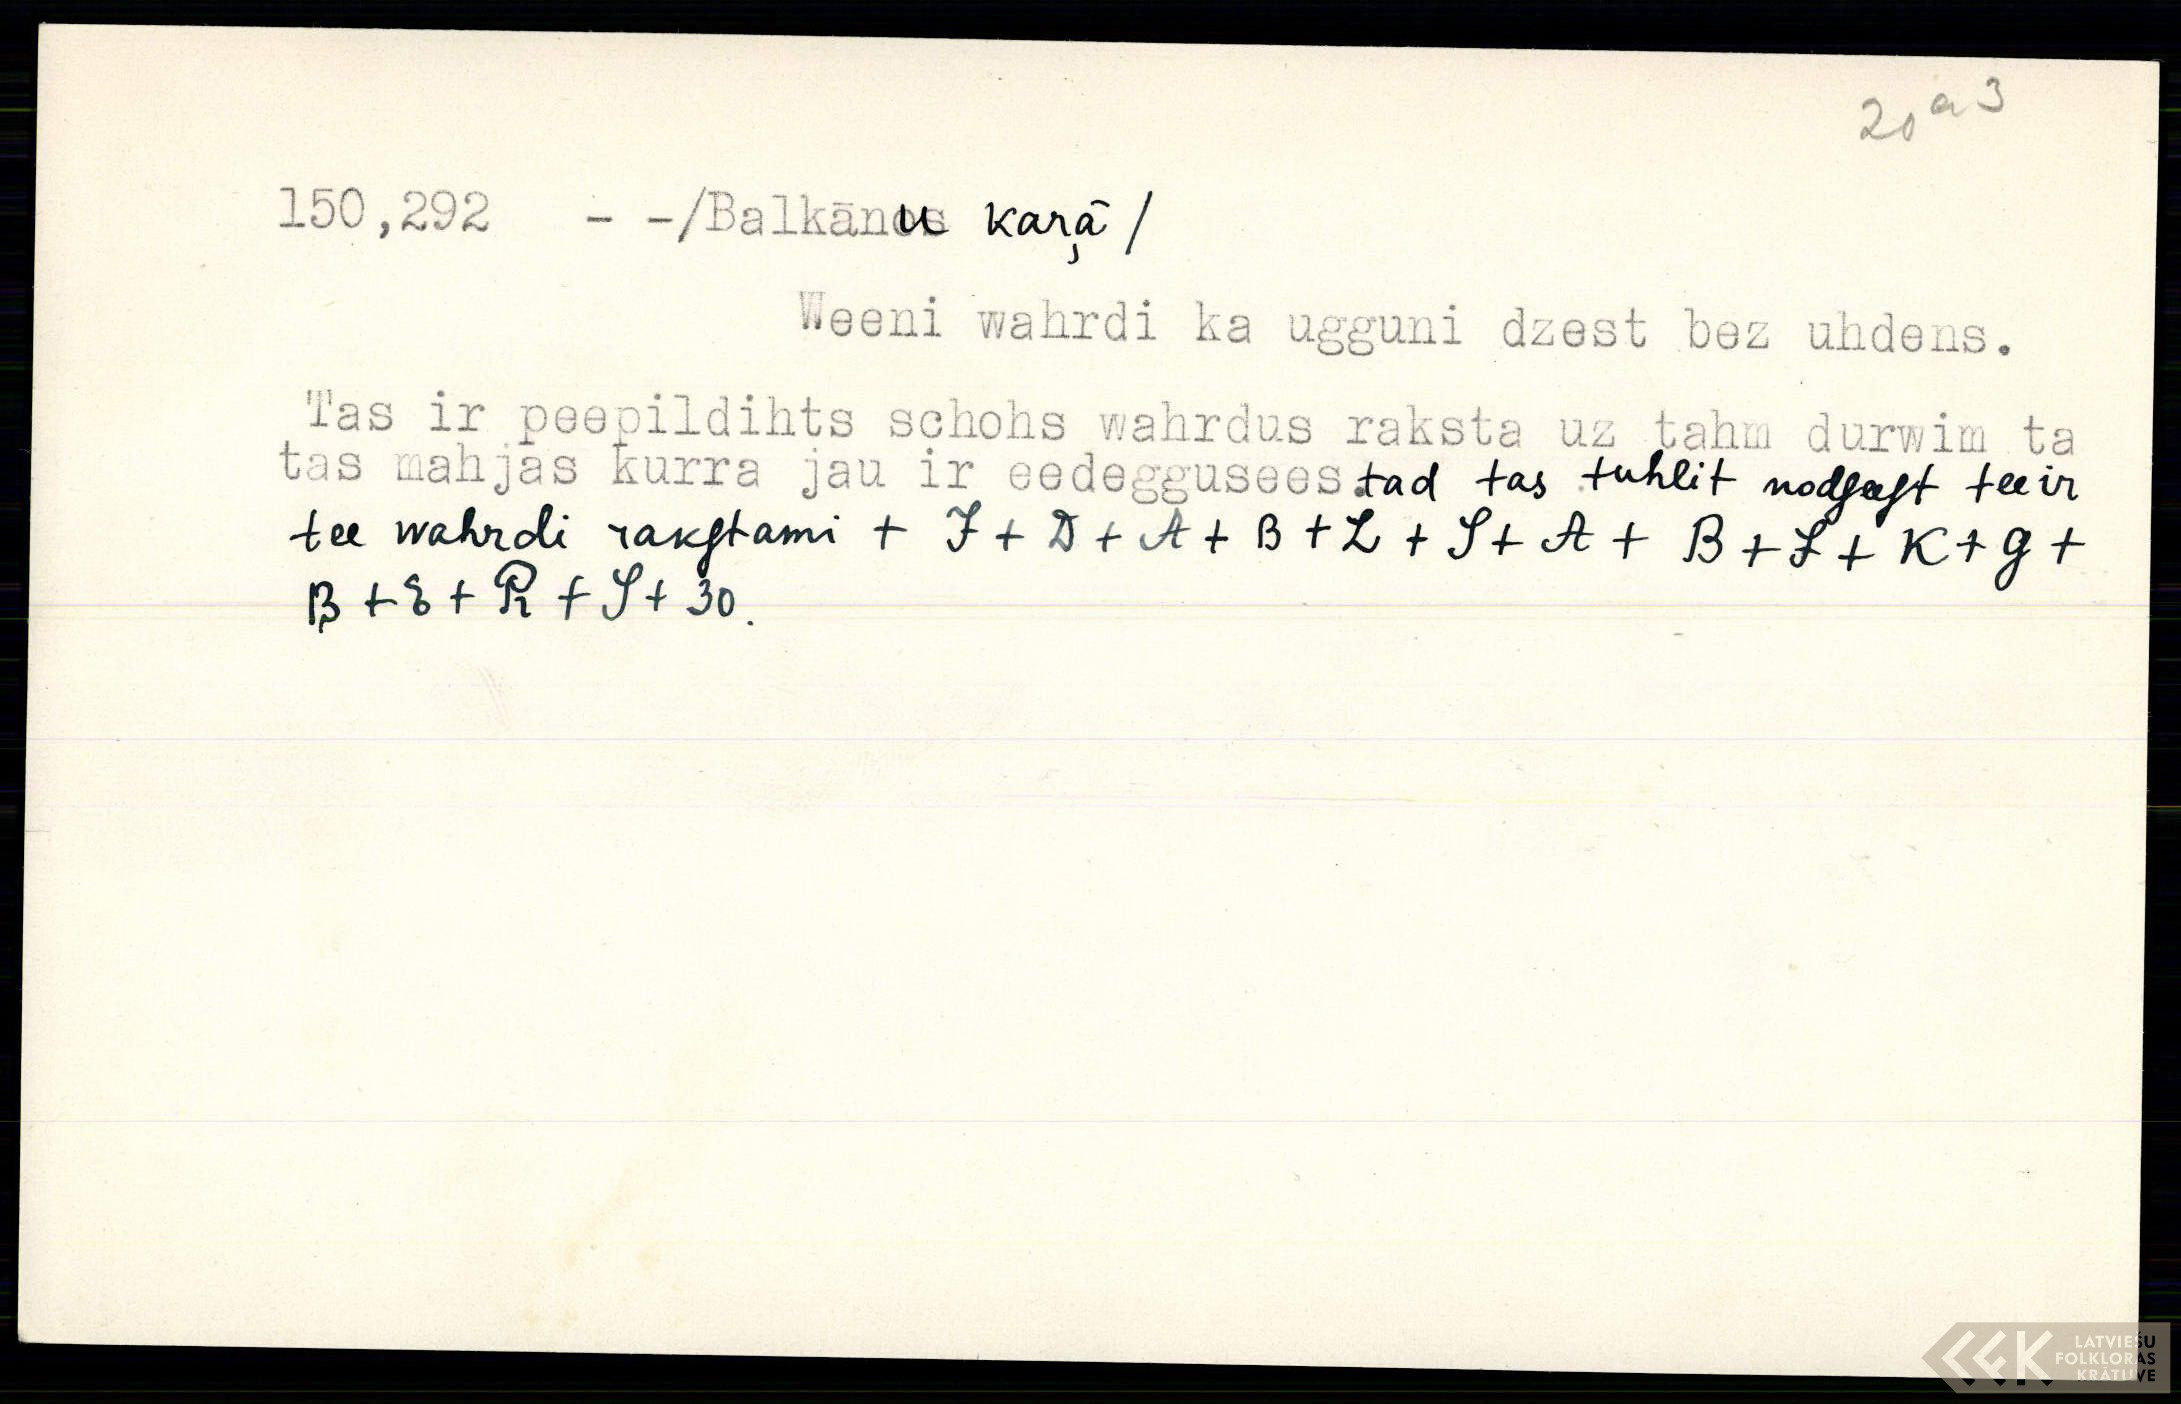 20 a 3
150,292 - -/Balkānu kaŗā/
Weeni wahrdi ka ugguni dzest bez uhdens.
Tas ir peepildihts schohs wahrdus raksta uz tahm durwim ta
tas mahjas kurra jau ir eedeggusees tad tas tuhlit nodſeeſt tee ir
tee wahrdi rakſtami + J + D + A + B + L + S + A + B + L + K + G +
B + E + R + S + 30.
LATVIEŠU
FOLKLORAS
KRĀTUVE